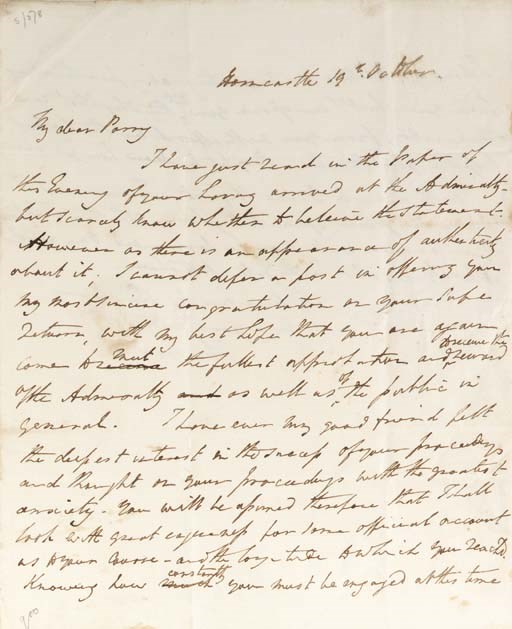 5/3/8
Horncastle 19th October.
My dear Parry
I have just read in the Paper of
this Evening of your having arrived at the Admiralty -
but scarcely know whether to believe the statement -
However as there is an appearance of authenticity
about it, I cannot defer a post in offering you
my most sincere congratulation on your safe
return, with my best hope that you are again
come to receive meet the fullest approbation and to receive the reward
of the Admiralty and as well as of the public in
general. I have ever my good friend felt
the deepest interest in the success of your proceedings
and thought on your proceedings with the greatest
anxiety - You will be assured therefore that I shall
look with great eagerness for some official account
as to your Course - and the longitude to which you reached.
Knowing how much constantly you must be engaged at this time